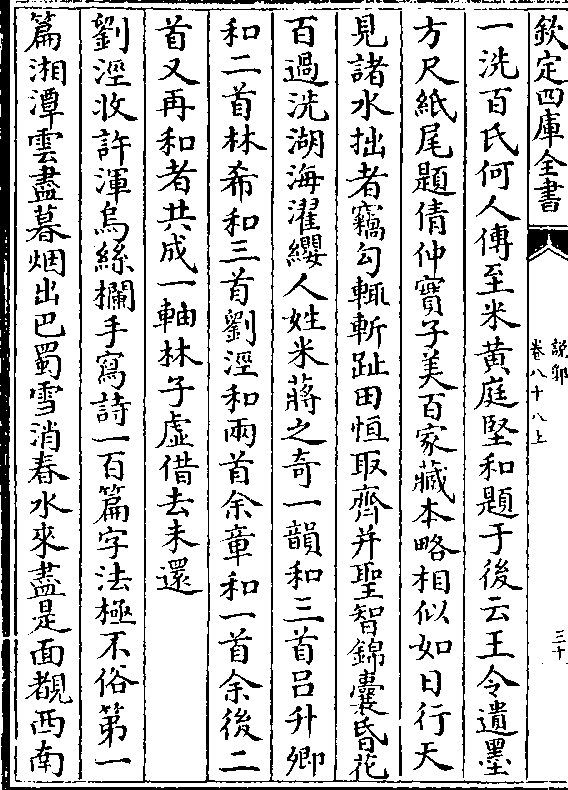 欽定四庫全書
說郛
卷八十八上
三十
一洗百氏何人傳至米黃庭堅和題于後云王令遺墨
方尺紙尾題倩仲寳子美百家藏本略相似如日行天
見諸水拙者竊勾輒斬趾田恒取齊并聖智錦囊昏花
百過洗湖海濯纓人姓米蔣之奇一韻和三首呂升卿
和二首林希和三首劉涇和兩首余章和一首余後二
首又再和者共成一軸林子虛借去未還
劉涇收許渾烏絲欄手寫詩一百篇字法極不俗第一
篇湘潭雲盡暮烟出巴蜀雪消春水來盡是面覩西南